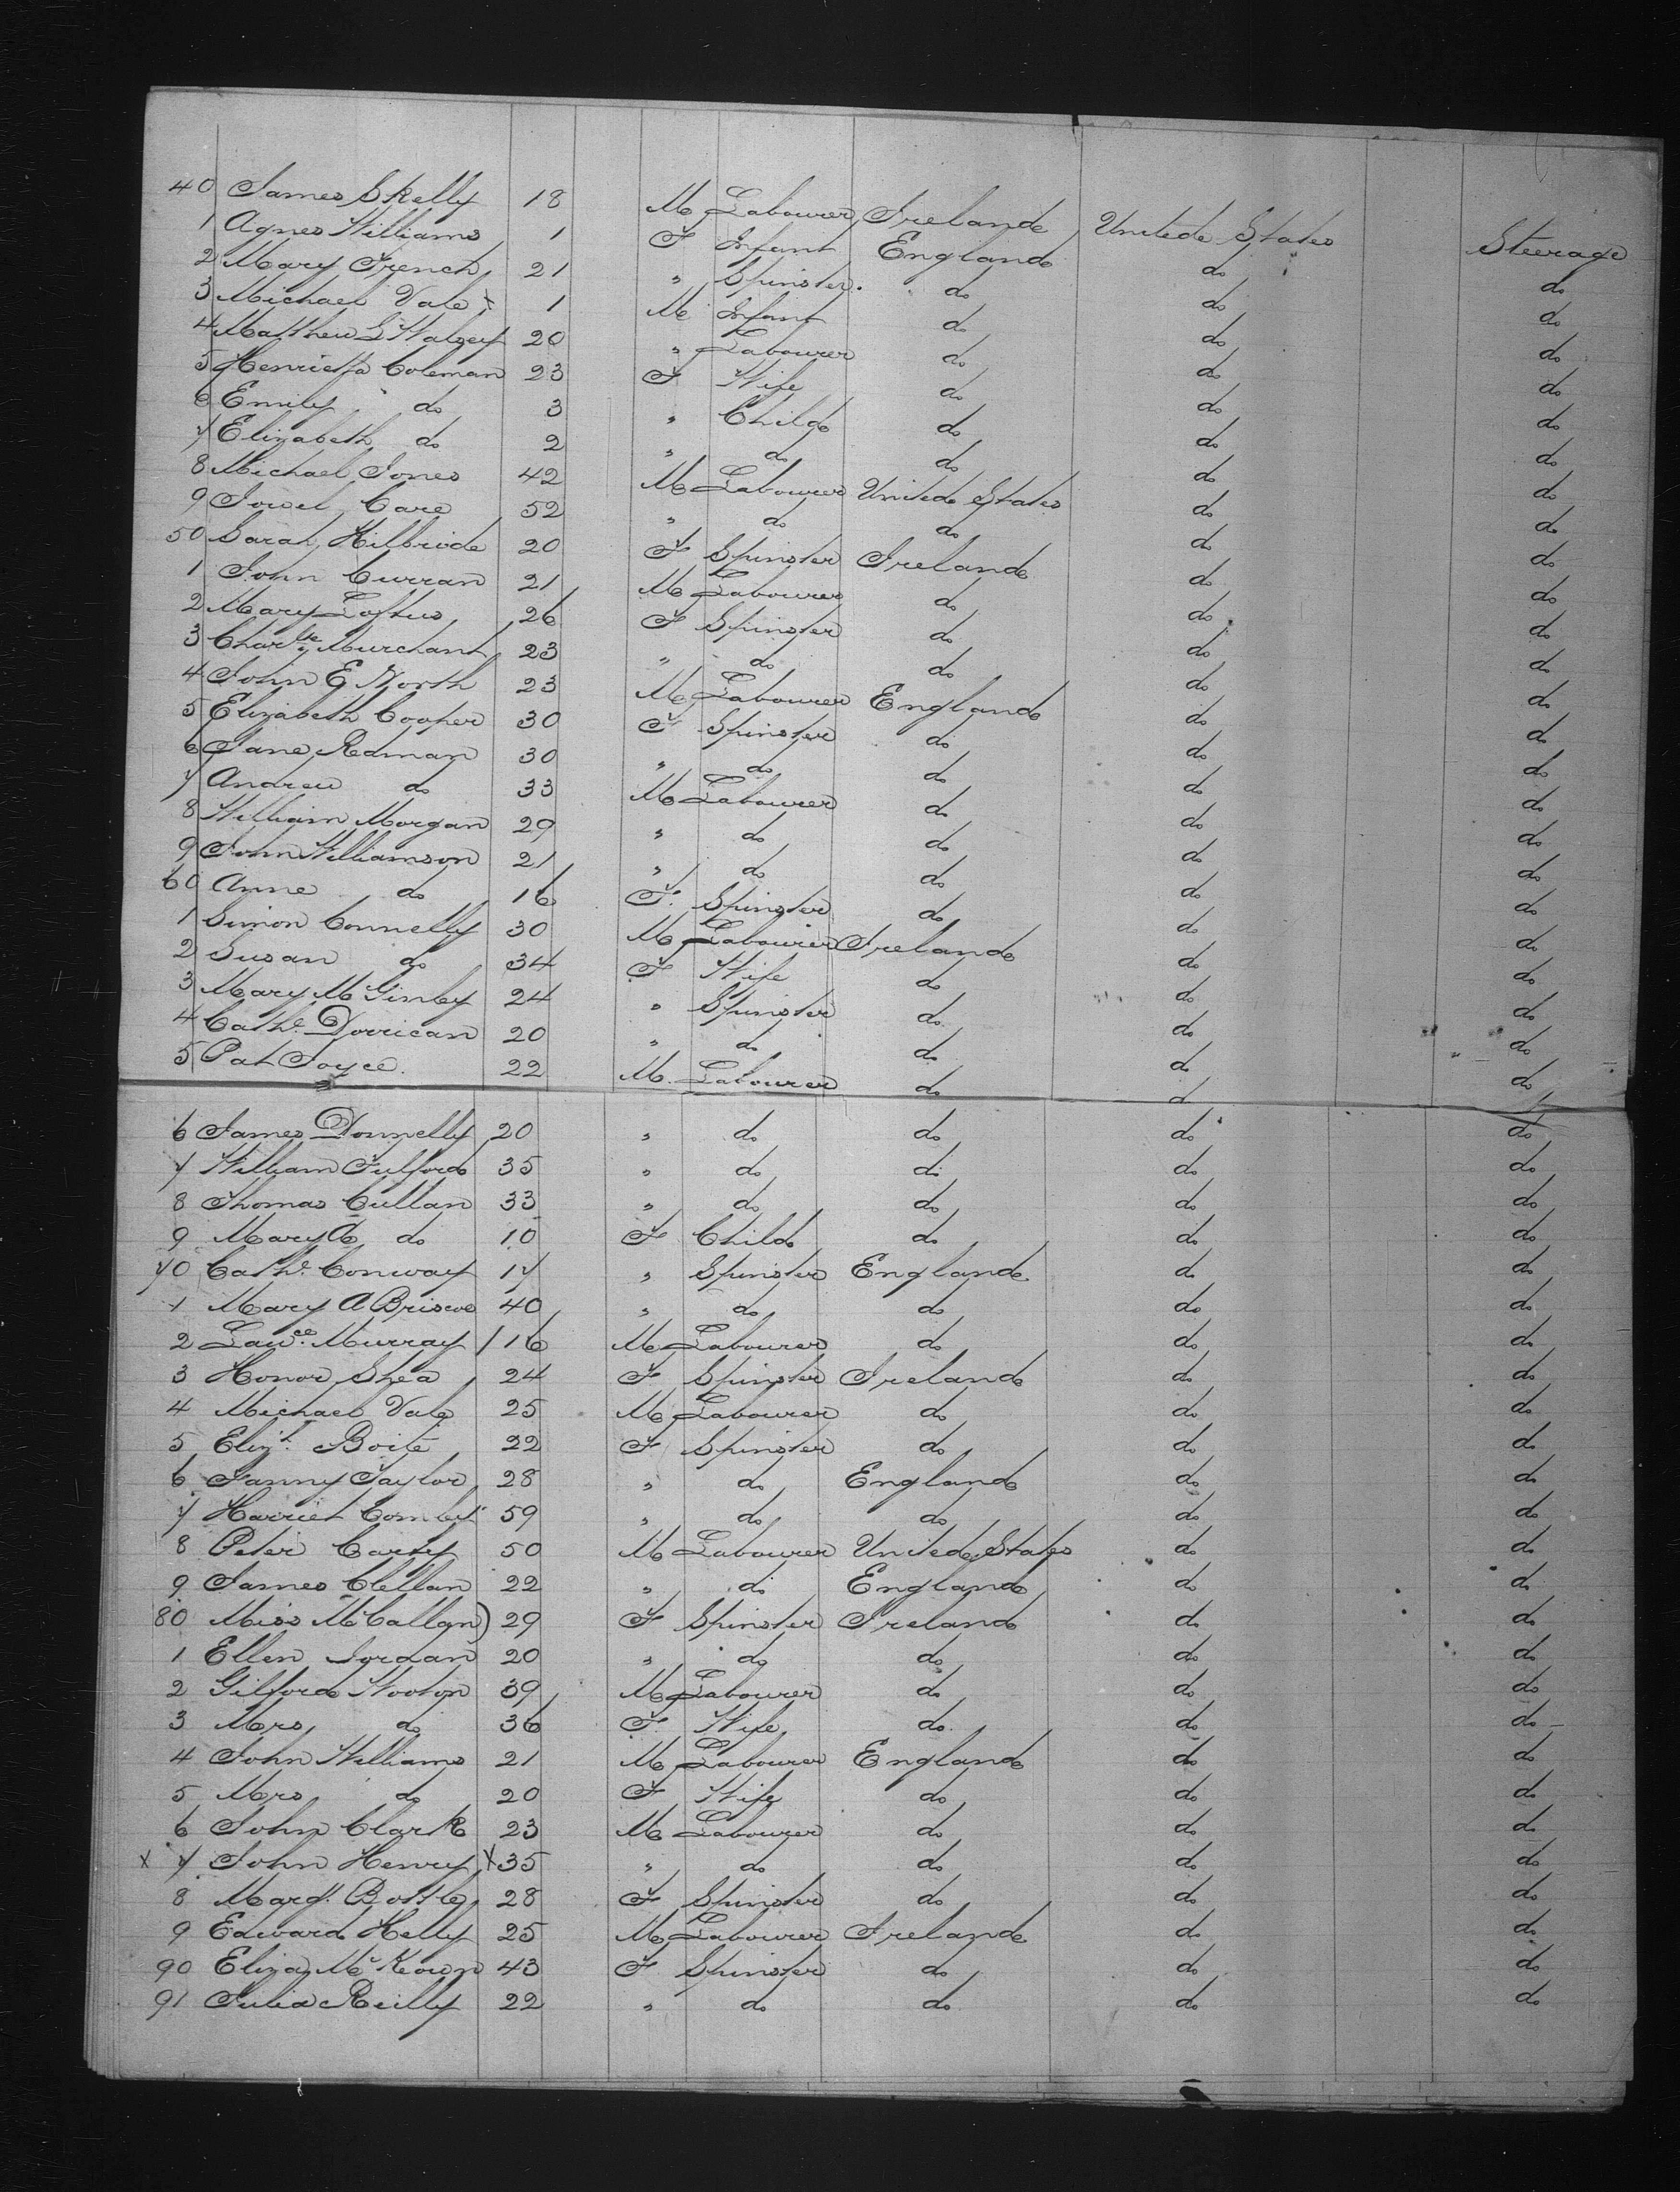 40 James Skelly 18 M Labourer Ireland United States Steerage
1 Agnes Williams 1 F Infant England do do
2 Mary French 21 " Spinster do do do
3 Michael Vale 1 M Infant do do do
4 Matthew S Halsey 20 " Labourer do do do
5 Henrietta Coleman 23 F Wife do do do
6 Emily do 3 " Child do do do
7 Elizabeth do 2 " do do do do
8 Michael Jones 42 M Labourer United States do do
9 Care 52 " do do do do
50 Sarah Kilbride 20 F Spinster Ireland do do
1 John Curran 21 M Labourer do do do
2 Mary Loftus 26 F Spinster do do do
3 Charlte Murchant 23 " do do do do
4 John E North 23 M Labourer England do do
5 Elizabeth Cooper 30 F Spinster do do do
6 Jane Redman 30 " do do do do
7 Andrew do 33 M Labourer do do do
8 William Morgan 29 " do do do do
9 John Williamson 21 " do do do do
60 Anne do 16 F. Spinster do do do
1 Simon Connelly 30 M Labourer Ireland do do
2 Susan do 34 F Wife do do do
3 Mary McGinley 24 " Spinster do do do
4 Cathe Dorrican 20 " do do do do
5 Pat Joyce. 22 M. Labourer do do do
6 James Donnelly 20 " do do do do
7 William Fulford 35 " do do do do
8 Thomas Cullan 33 " do do do do
9 Mary A do 10 F Child do do do
70 Cathe Conway 17 " Spinster England do do
1 Mary A Briscoe 40 " do do do do
2 Lawce Murray 16 M Labourer do do do
3 Honor Shea 24 F Spinster Ireland do do
4 Michael Vale 25 M Labourer do do do
5 Elizh Boite 22 F Spinster do do do
6 Fanny Taylor 28 " do England do do
7 Harriet 59 " do do do do
8 Peter Carty 50 M Labourer United States do do
9 James Clellan 22 " do England do do
80 Miss McCallan 29 F Spinster Ireland do do
1 Ellen Jordan 20 " do do do do
2 Gilford Wooton 39 M Labourer do do do
3 Mrs do 36 F. Wife do do do
4 John Williams 21 M Labourer England do do
5 Mrs do 20 F Wife do do do
6 John Clark 23 M Labourer do do do
x 7 John Henry x 35 " do do do do
8 Margt Bottle 28 F Spinster do do do
9 Edward Kelly 25 M Labourer Ireland do do
90 Eliza McKeown 43 F Spinster do do do
91 Julia Reilly 22 " do do do do